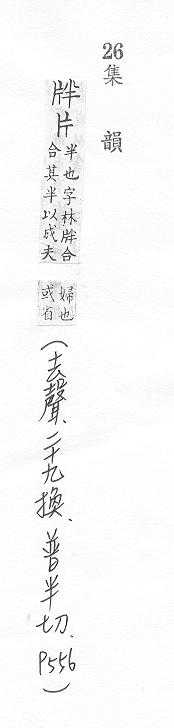 26集韻
牉片
半也字林牉合
合其半以成夫
婦也
或省
(去聲、二十九換、普半切、P556)